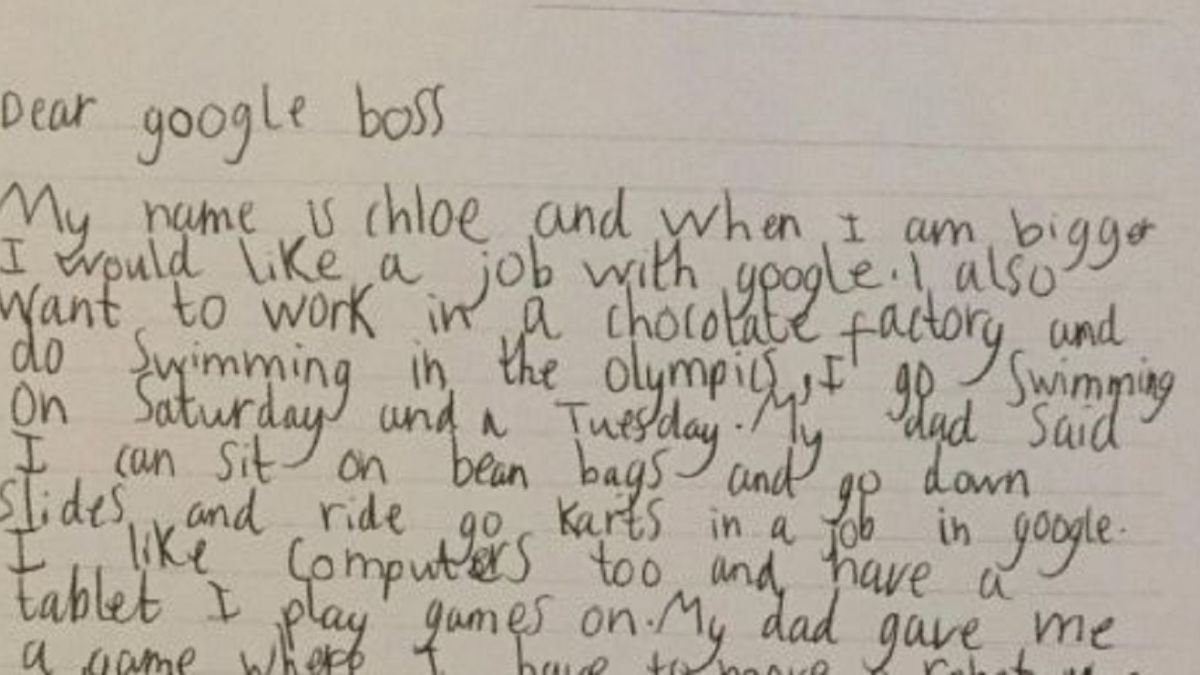 Dear google boss
My name is chloe and when I am bigger
I would like a job with google. I also
want to work in a chocolate factory and
do swimming in the olympics, I go Swimming
on Saturday and a Tuesday. My dad said
I can sit on bean bags and go down
slides and ride go karts in a job in google.
I like computers too and have a
tablet I play games on. My dad gave me
a game where I have to move a robot